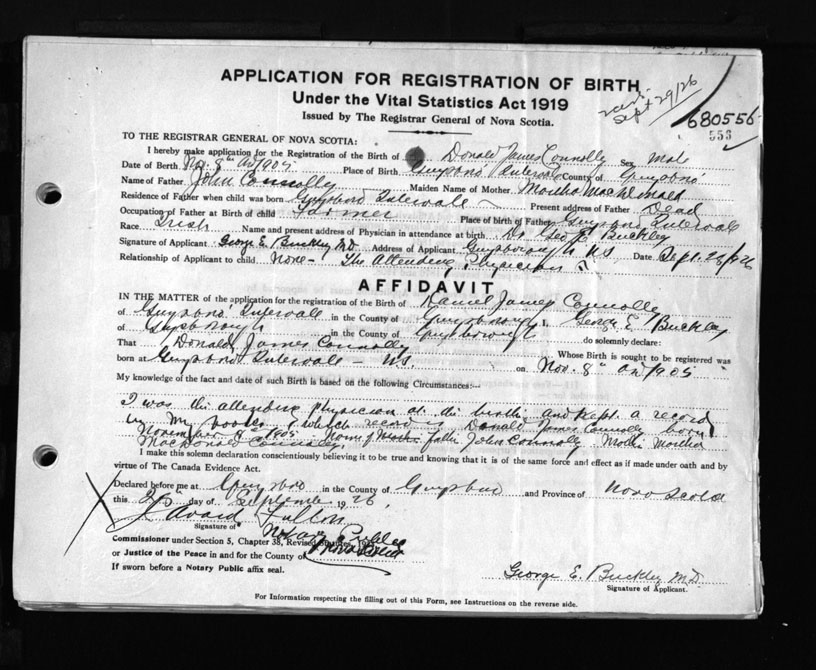 APPLICATION FOR REGISTRATION OF BIRTH
Under the Vital Statistics Act 1919
Issued by The Registrar General of Nova Scotia.
Sept 29/26
680556
553
TO THE REGISTRAR GENERAL OF NOVA SCOTIA:
I hereby make application for the Registration of the Birth of Donald James Connolly Sex Male
Date of Birth Nov. 8th AD 1905 Place of Birth Guysboro Intervale County of Guysboro
Name of Father John Connolly Maiden Name of Mother Martha MacDonald
Residence of Father when child was born Guysboro Intervale Present address of Father Dead
Occupation of Father at Birth of child Farmer Place of birth of Father Guysboro Intervale
Race Irish Name and present address of Physician in attendance at birth Dr. Geo E Buckley
Signature of Applicant George E. Buckley M.D. Address of Applicant Guysborough NS Date Sept. 28/1926
Relationship of Applicant to child None - The Attending Physician
AFFIDAVIT
IN THE MATTER of the application for the registration of the Birth of Daniel James Connolly
of Guysboro Intervale in the County of Guysborough I, George E Buckley
of Guysborough in the County of Guysborough do solemnly declare:
That Donald James Connolly Whose Birth is sought to be registered was
born at Guysboro Intervale - NS. on Nov. 8th AD 1905
My knowledge of the fact and date of such Birth is based on the following Circumstances:—
I was the attending physician at the birth and kept a record
in my books which record is Donald James Connolly born
November 8 1905 Name of father John Connolly Mother Martha
MacDonald Connolly
I make this solemn declaration conscientiously believing it to be true and knowing that it is of the same force and effect as if made under oath and by
virtue of The Canada Evidence Act.
Declared before me at Guysboro in the County of Guysboro and Province of Nova Scotia
this 28 day of September 1926
J. Avard Fulton
Signature of
Notary Public
Commissioner under Section 5, Chapter 38, Revised
or Justice of the Peace in and for the County of Nova Scotia
If sworn before a Notary Public affix seal.
George E. Buckley M.D.
Signature of Applicant.
For Information respecting the filling out of this Form, see Instructions on the reverse side.